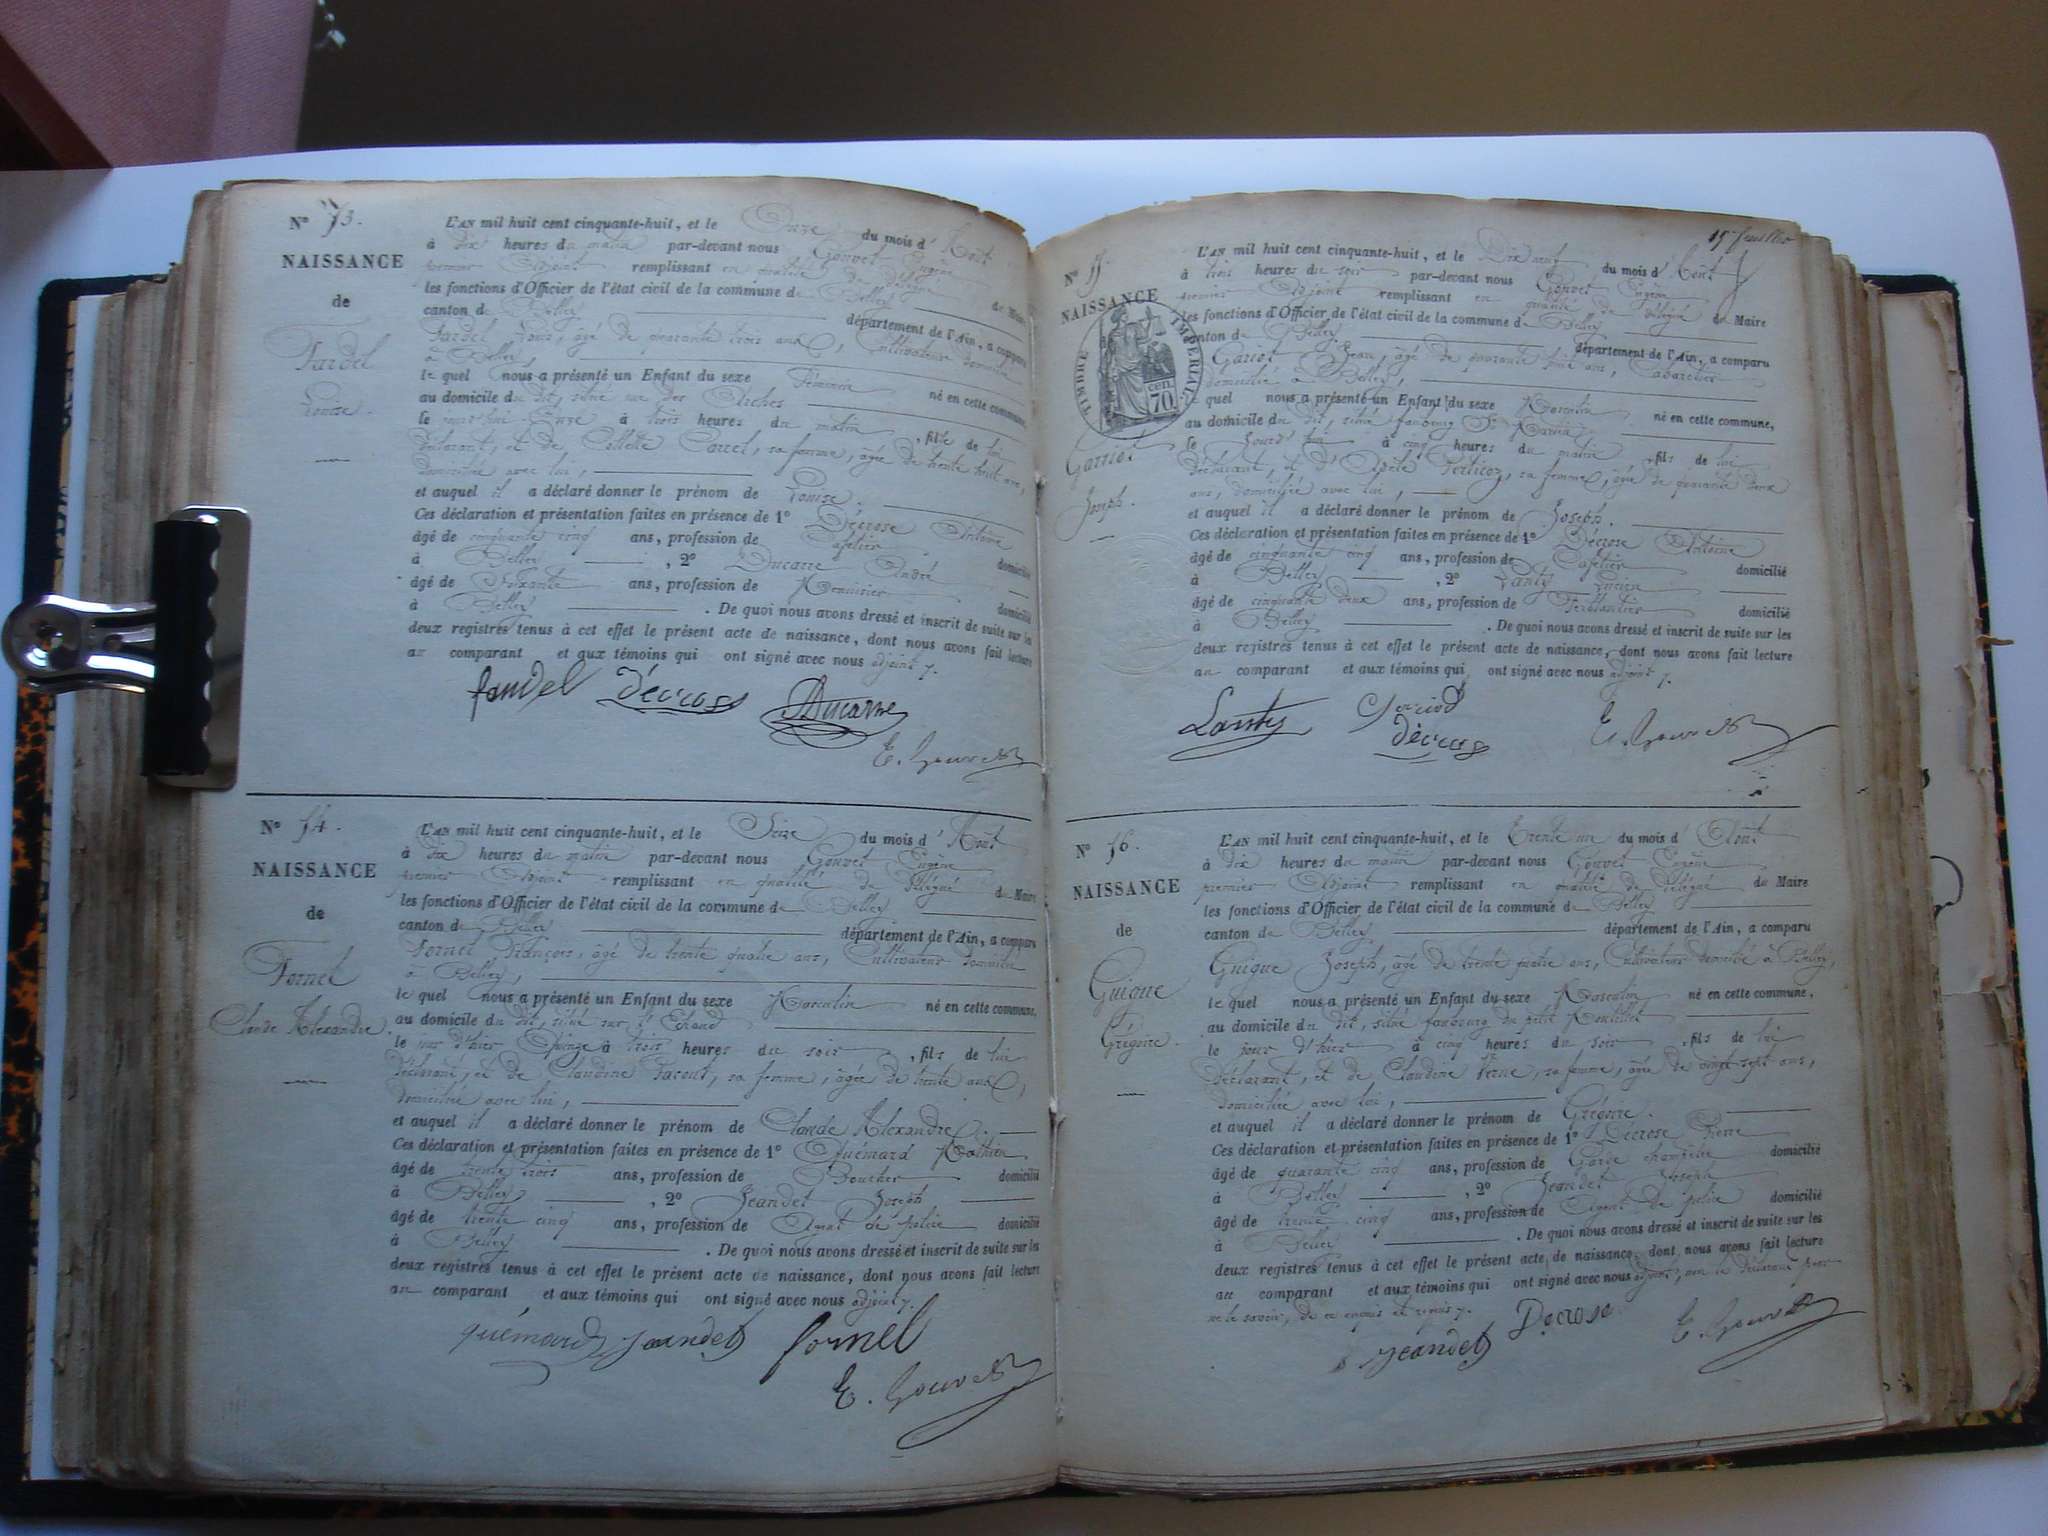 N° 53.
NAISSANCE
de
Fardel
Louise.
L'AN mil huit cent cinquante-huit, et le Onze du mois d'Août
à dix heures du matin par-devant nous Gouvet Eugène
premier Adjoint remplissant en qualité de Délégué du Maire
les fonctions d'Officier de l'état civil de la commune de Belley
canton de Belley département de l'Ain, a comparu
Fardel Louis, âgé de quarante trois ans, Cultivateur domicilié
à Belley,
le quel nous a présenté un Enfant du sexe Féminin né en cette commune,
au domicile du dit, situé rue des Arches
le jourd'hui Onze à trois heures du matin, fille de lui
déclarant, et de Collette Carrel, sa femme, âgée de trente huit ans,
domiciliée avec lui,
et auquel il a déclaré donner le prénom de Louise.
Ces déclaration et présentation faites en présence de 1° Décrose Antoine
âgé de cinquante cinq ans, profession de Cafetier domicilié
à Belley, 2° Ducarre André
âgé de Soixante ans, profession de Menuisier domicilié
à Belley. De quoi nous avons dressé et inscrit de suite sur les
deux registres tenus à cet effet le présent acte de naissance, dont nous avons fait lecture
au comparant et aux témoins qui ont signé avec nous adjoint.
fardel Décrose Ducarre
E. Gouvet
N° 54.
NAISSANCE
de
Fornel
Claude Alexandre.
L'AN mil huit cent cinquante-huit, et le Seize du mois d'Août
à dix heures du matin par-devant nous Gouvet Eugène
premier Adjoint remplissant en qualité de Délégué du Maire
les fonctions d'Officier de l'état civil de la commune de Belley
canton de Belley département de l'Ain, a comparu
Fornel François, âgé de trente quatre ans, Cultivateur domicilié
à Belley,
le quel nous a présenté un Enfant du sexe Masculin né en cette commune,
au domicile du dit, situé sur l'Echaud
le jour d'hier Quinze à trois heures du soir, fils de lui
déclarant, et de Claudine Tacout, sa femme, âgée de trente ans,
domiciliée avec lui,
et auquel il a déclaré donner le prénom de Claude Alexandre.
Ces déclaration et présentation faites en présence de 1° Quémard Mathieu
âgé de trente trois ans, profession de Boucher domicilié
à Belley, 2° Jeandet Joseph
âgé de trente cinq ans, profession de Agent de police domicilié
à Belley. De quoi nous avons dressé et inscrit de suite sur les
deux registres tenus à cet effet le présent acte de naissance, dont nous avons fait lecture
au comparant et aux témoins qui ont signé avec nous adjoint.
quémard Jeandet fornel
E. Gouvet
15e feuillet
N° 55.
NAISSANCE
TIMBRE IMPÉRIAL
70 cen.
Garriot
Joseph.
L'AN mil huit cent cinquante-huit, et le Dix neuf du mois d'Août
à trois heures du soir par-devant nous Gouvet Eugène
premier Adjoint remplissant en qualité de Délégué du Maire
les fonctions d'Officier de l'état civil de la commune de Belley
canton de Belley département de l'Ain, a comparu
Garriot Jean, âgé de quarante trois ans, Cabaretier
domicilié à Belley,
quel nous a présenté un Enfant du sexe Masculin né en cette commune,
au domicile du dit, situé faubourg St Martin
le jourd'hui à cinq heures du matin, fils de lui
déclarant, et d'Adèle Berlioz, sa femme, âgée de quarante deux
ans, domiciliée avec lui,
et auquel il a déclaré donner le prénom de Joseph.
Ces déclaration et présentation faites en présence de 1° Décrose Antoine
âgé de cinquante cinq ans, profession de Cafetier domicilié
à Belley, 2° Lanty Lucien
âgé de cinquante deux ans, profession de Ferblantier domicilié
à Belley. De quoi nous avons dressé et inscrit de suite sur les
deux registres tenus à cet effet le présent acte de naissance, dont nous avons fait lecture
au comparant et aux témoins qui ont signé avec nous adjoint.
Lanty Décrose E. Gouvet
N° 56.
NAISSANCE
de
Guigue
Grégoire.
L'AN mil huit cent cinquante-huit, et le Trente un du mois d'Août
à dix heures du matin par-devant nous Gouvet Eugène
premier Adjoint remplissant en qualité de Délégué du Maire
les fonctions d'Officier de l'état civil de la commune de Belley
canton de Belley département de l'Ain, a comparu
Guigue Joseph, âgé de trente quatre ans, Cultivateur domicilié à Belley,
le quel nous a présenté un Enfant du sexe Masculin né en cette commune,
au domicile du dit, situé faubourg du petit
le jour d'hier à cinq heures du soir, fils de lui
déclarant, et de Claudine Verne, sa femme, âgée de vingt sept ans,
domiciliée avec lui,
et auquel il a déclaré donner le prénom de Grégoire.
Ces déclaration et présentation faites en présence de 1° Décrose Pierre
âgé de quarante cinq ans, profession de Garde champêtre domicilié
à Belley, 2° Jeandet Joseph
âgé de trente cinq ans, profession de Agent de police domicilié
à Belley. De quoi nous avons dressé et inscrit de suite sur les
deux registres tenus à cet effet le présent acte de naissance, dont nous avons fait lecture
au comparant et aux témoins qui ont signé avec nous adjoint, non le déclarant pour
ne le savoir, de ce enquis et requis.
Jeandet Decrose E. Gouvet